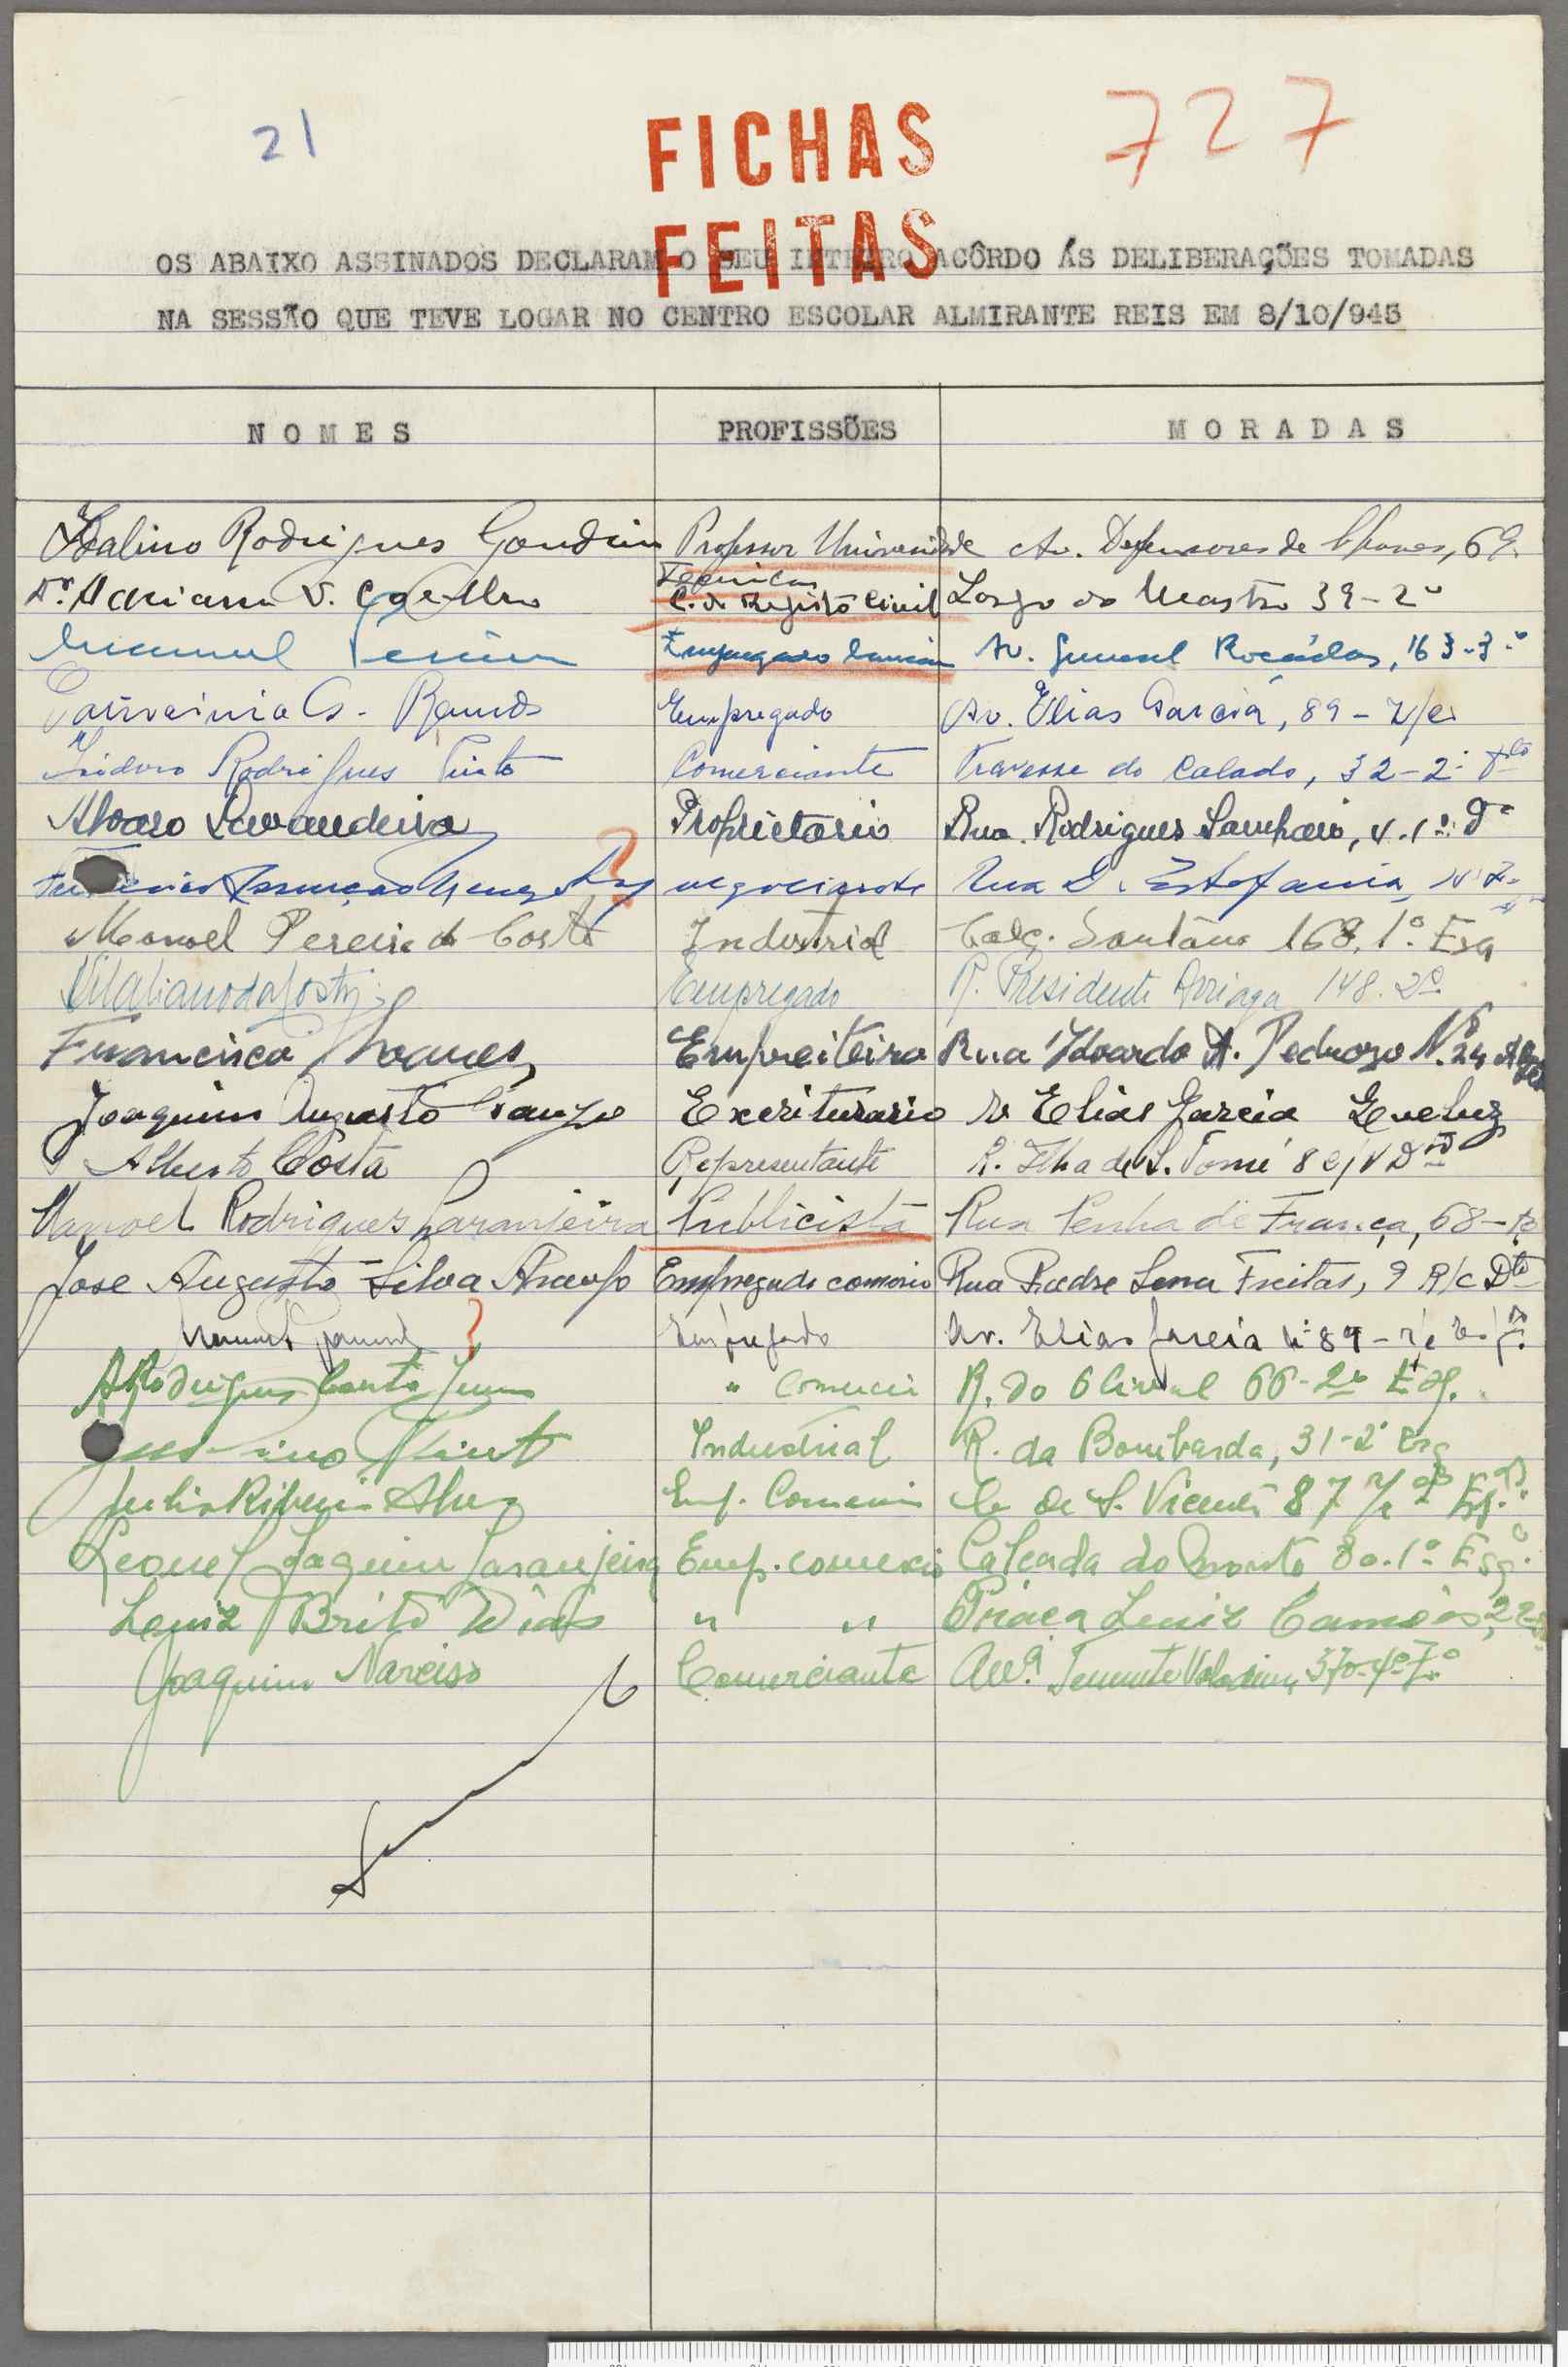 21
727
FICHAS
FEITAS
OS ABAIXO ASSINADOS DECLARAM O SEU INTEIRO ACÔRDO ÁS DELIBERAÇÕES TOMADAS
NA SESSÃO QUE TEVE LOGAR NO CENTRO ESCOLAR ALMIRANTE REIS EM 8/10/945
NOMES PROFISSÕES MORADAS
Idalino Rodrigues Gondim Professor Universidade Av. Defensores de Chaves, 69
Tecnica
Dr. Adriano V. Coelho C. do Registo Civil Largo do Mastro 39-2º
Manuel Empregado Av. General Roçadas, 163-3º
Ramos Empregado Av. Elias Garcia, 89-r/c
Isidoro Rodrigues Pinto Comerciante Travessa do Calado, 32-2º Dto
Alvaro Lavandeira Proprietario Rua Rodrigues Sampaio, 4.1º Dº
? negociante Rua D. Estefania
Manoel Pereira da Costa Industrial Calç. Santana 168, 1º Esq
Vitaliano da Costa Empregado R. Presidente Arriaga 148. 2º
Francisco Empreiteiro Rua Eduardo A. Pedroso Nº 24
Joaquim Augusto Escriturario R Elias Garcia Queluz
Alberto Costa Representante R. Ilha de S. Tomé 8 c/v Dto
Manoel Rodrigues Laranjeira Publicista Rua Penha de França, 68
José Augusto Silva Araujo Empregado comercio Rua Padre Sena Freitas, 9 R/c Dto
Manuel ? Empregado Av. Elias Garcia nº 89 - r/c
A Rodrigues Costa " Comercio R. do Olival 66-2º Esq.
Pinto Industrial R. da Bombarda, 31-2º Esq
Julio Ribeiro Alves Emp. Comercio C. de S. Vicente 87 Esq.
Leonel Joaquim Laranjeira Emp. comercio Calçada do Monte 80-1º Esqº
Luiz Brito Dias " " Praça Luiz Camões, 22
Joaquim Narciso Comerciante Avª Tenente Valadim, 37